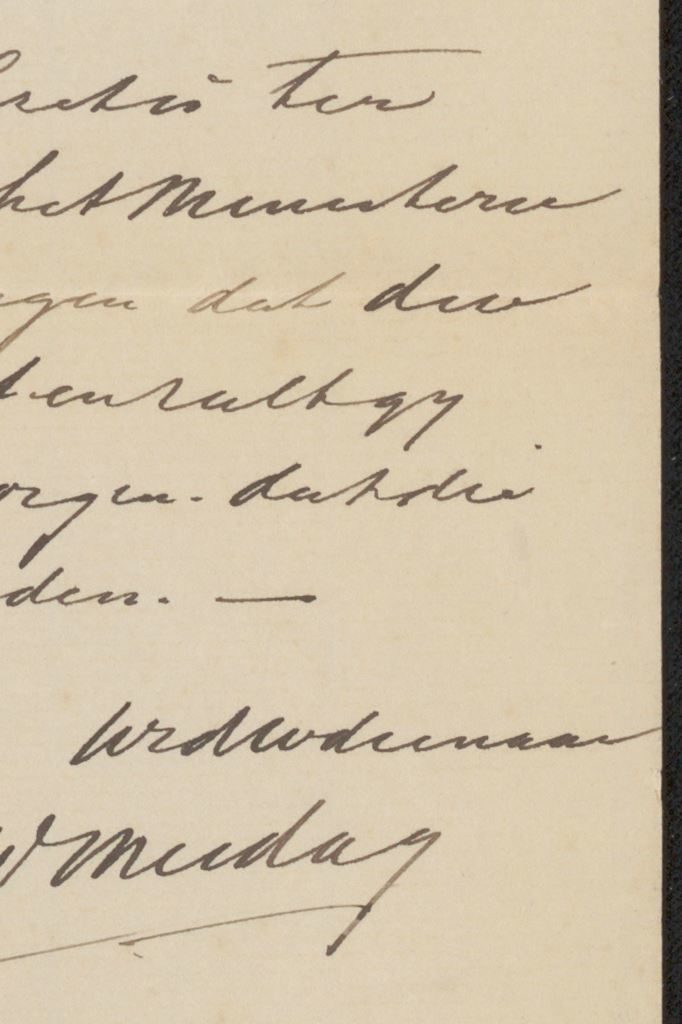 gratis ter
het Ministerie
gen dat deze
en zult gy
zorgen. dat die
den. —
Uw dw dienaar
W Mesdag